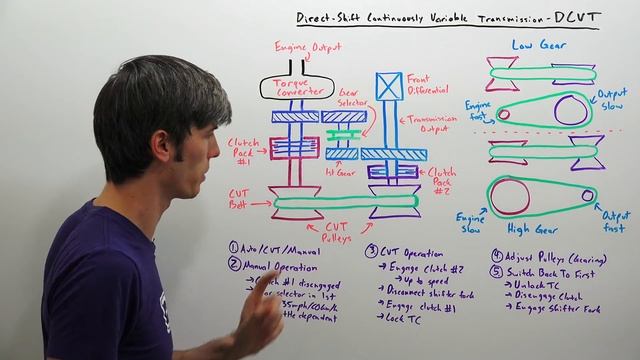 Direct-Shift Continuously Variable Transmission - DCVT
Engine Output
Torque
Converter
Gear
Selector
Front
Differential
Clutch
Pack
#1
Transmission
Output
1st Gear
Clutch
Pack
#2
CVT
Belt
CVT
Pulleys
Low Gear
Engine
fast
Output
Slow
Engine
Slow
High Gear
Output
fast
① Auto/CVT/Manual
② Manual Operation
#1 disengaged
selector in 1st
35mph/60km/h
dependent
③ CVT Operation
→ Engage Clutch #2
→ Up to speed
→ Disconnect shifter fork
→ Engage clutch #1
→ Lock TC
④ Adjust Pulleys (Gearing)
⑤ Switch Back To First
→ Unlock TC
→ Disengage Clutch
→ Engage Shifter Fork